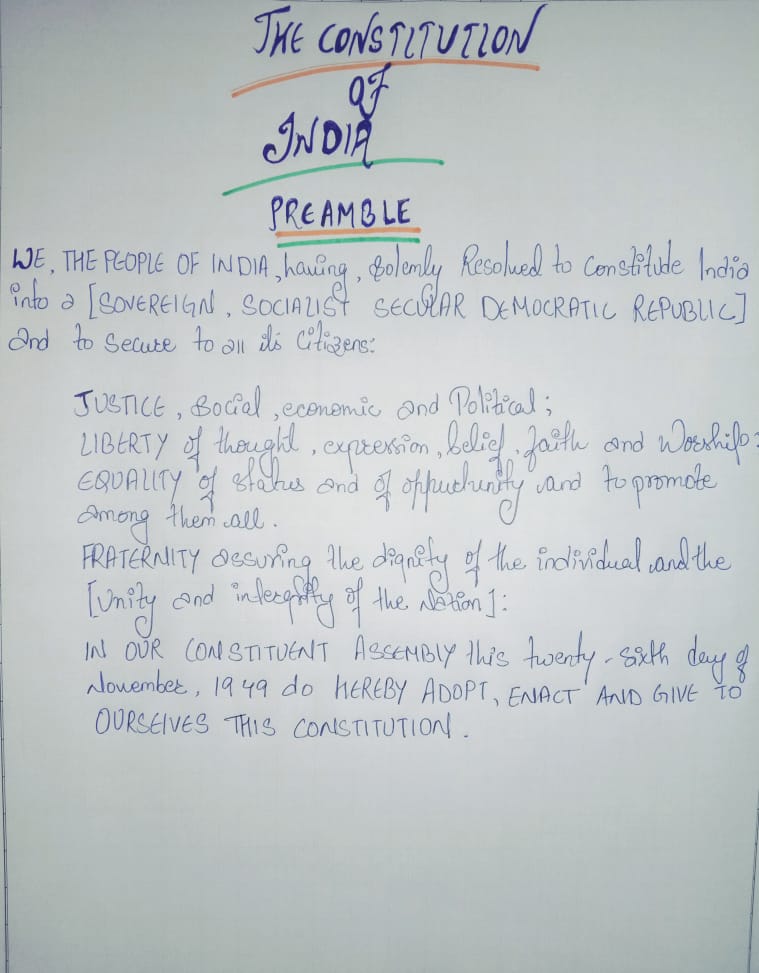 THE CONSTITUTION
OF
INDIA
PREAMBLE
WE, THE PEOPLE OF INDIA, having, solemly Resolved to constitude India
into a [SOVEREIGN, SOCIALIST SECULAR DEMOCRATIC REPUBLIC]
and to secure to all its citizens:
JUSTICE, social, economic and Political;
LIBERTY of thought, expression, belief, faith and Worship:
EQUALITY of status and of oppurtunity and to promote
among them all.
FRATERNITY assuring the dignity of the individual and the
[Unity and interginty of the Nation]:
IN OUR CONSTITUENT ASSEMBLY this twenty-sixth day of
November, 1949 do HEREBY ADOPT, ENACT AND GIVE TO
OURSELVES THIS CONSTITUTION.